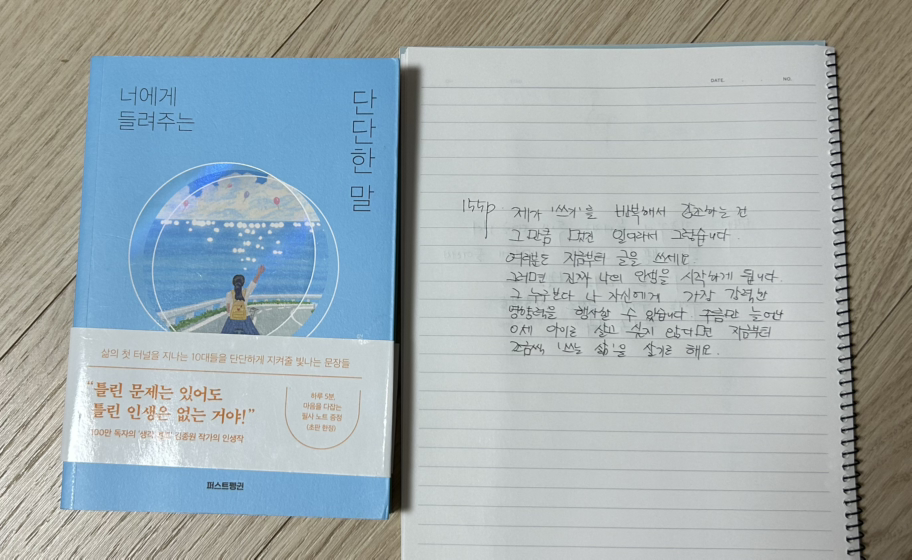 너에게
들려주는
단단한 말
삶의 첫 터널을 지나는 10대들을 단단하게 지켜줄 빛나는 문장들
“틀린 문제는 있어도
틀린 인생은 없는 거야!”
100만 독자의 '생각 김종원 작가의 인생작
하루 5분,
마음을 다잡는
필사 노트 증정
(초판 한정)
퍼스트펭귄
DATE. NO.
155p
제가 '쓰기'를 반복해서 강조하는 건
그만큼 멋진 일이라서 그렇습니다.
여러분도 지금부터 글을 쓰세요.
그러면 진짜 나의 인생을 시작하게 됩니다.
그 누구보다 나 자신에게 가장 강력한
영향력을 행사할 수 있습니다. 주름만 늘어난
아이로 살고 싶지 않다면 지금부터
조금씩 '쓰는 삶'을 살기로 해요.